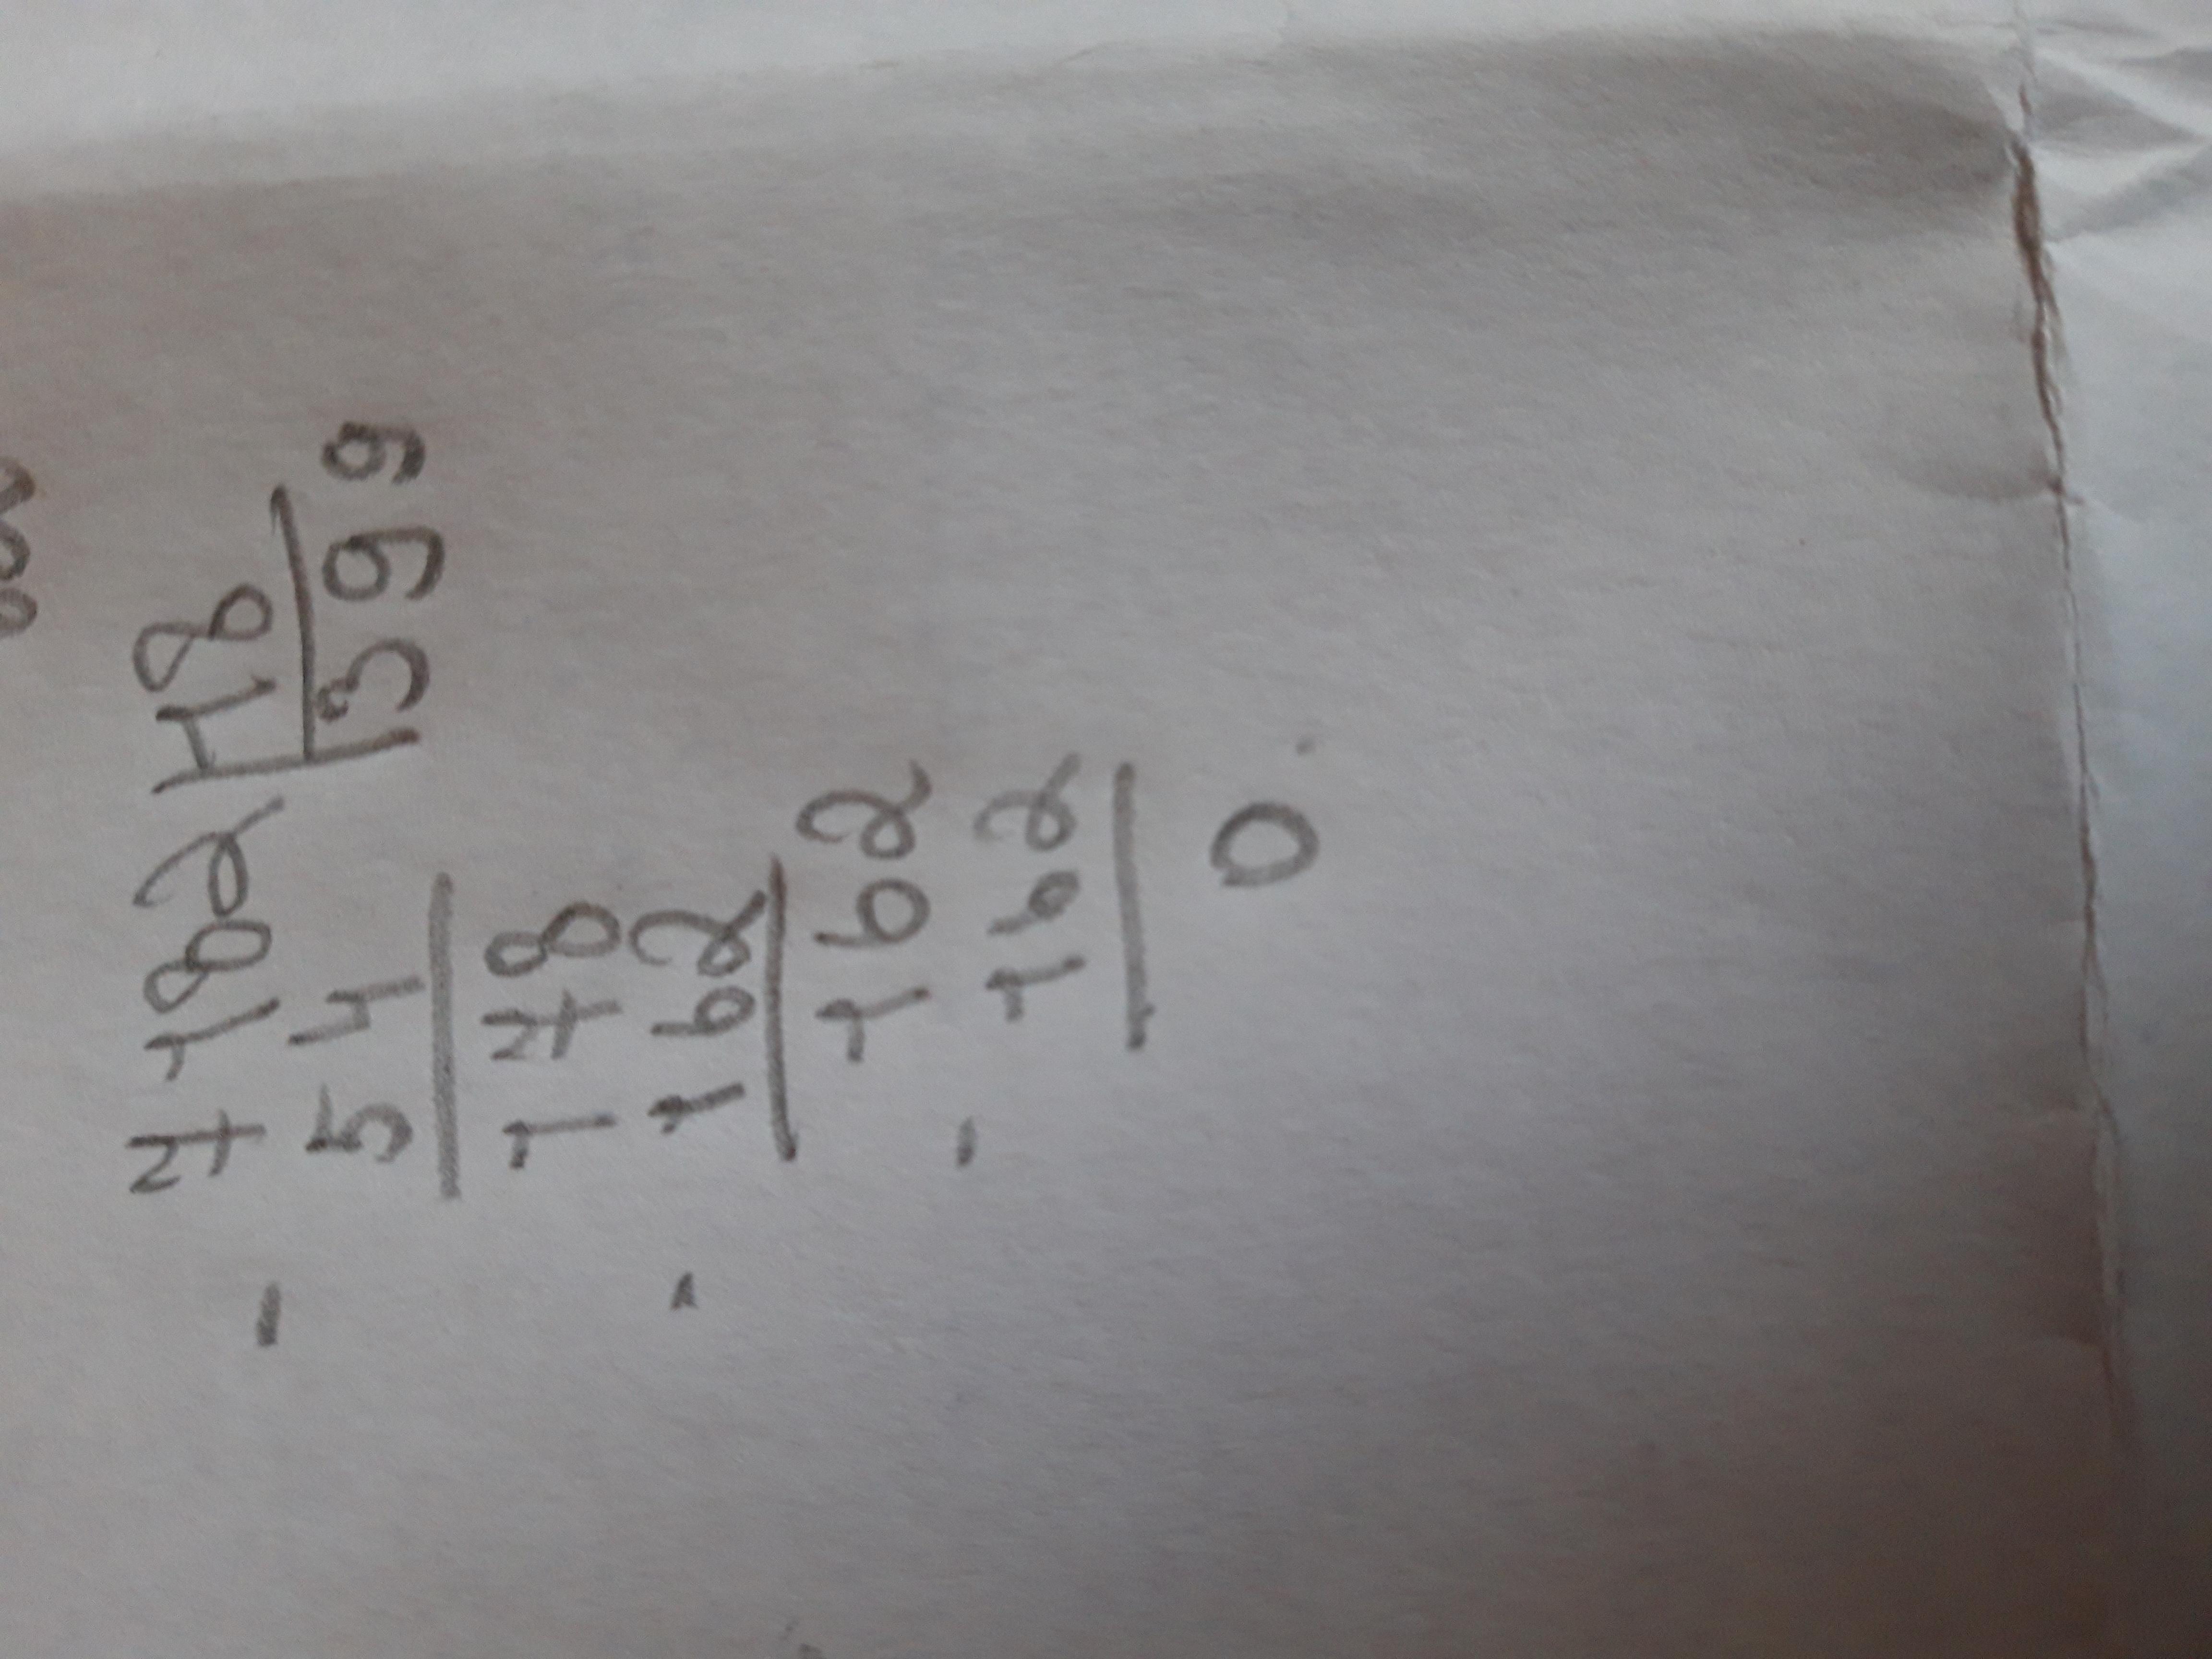 7182 | 18
- 54 | 399
178
- 162
162
- 162
0